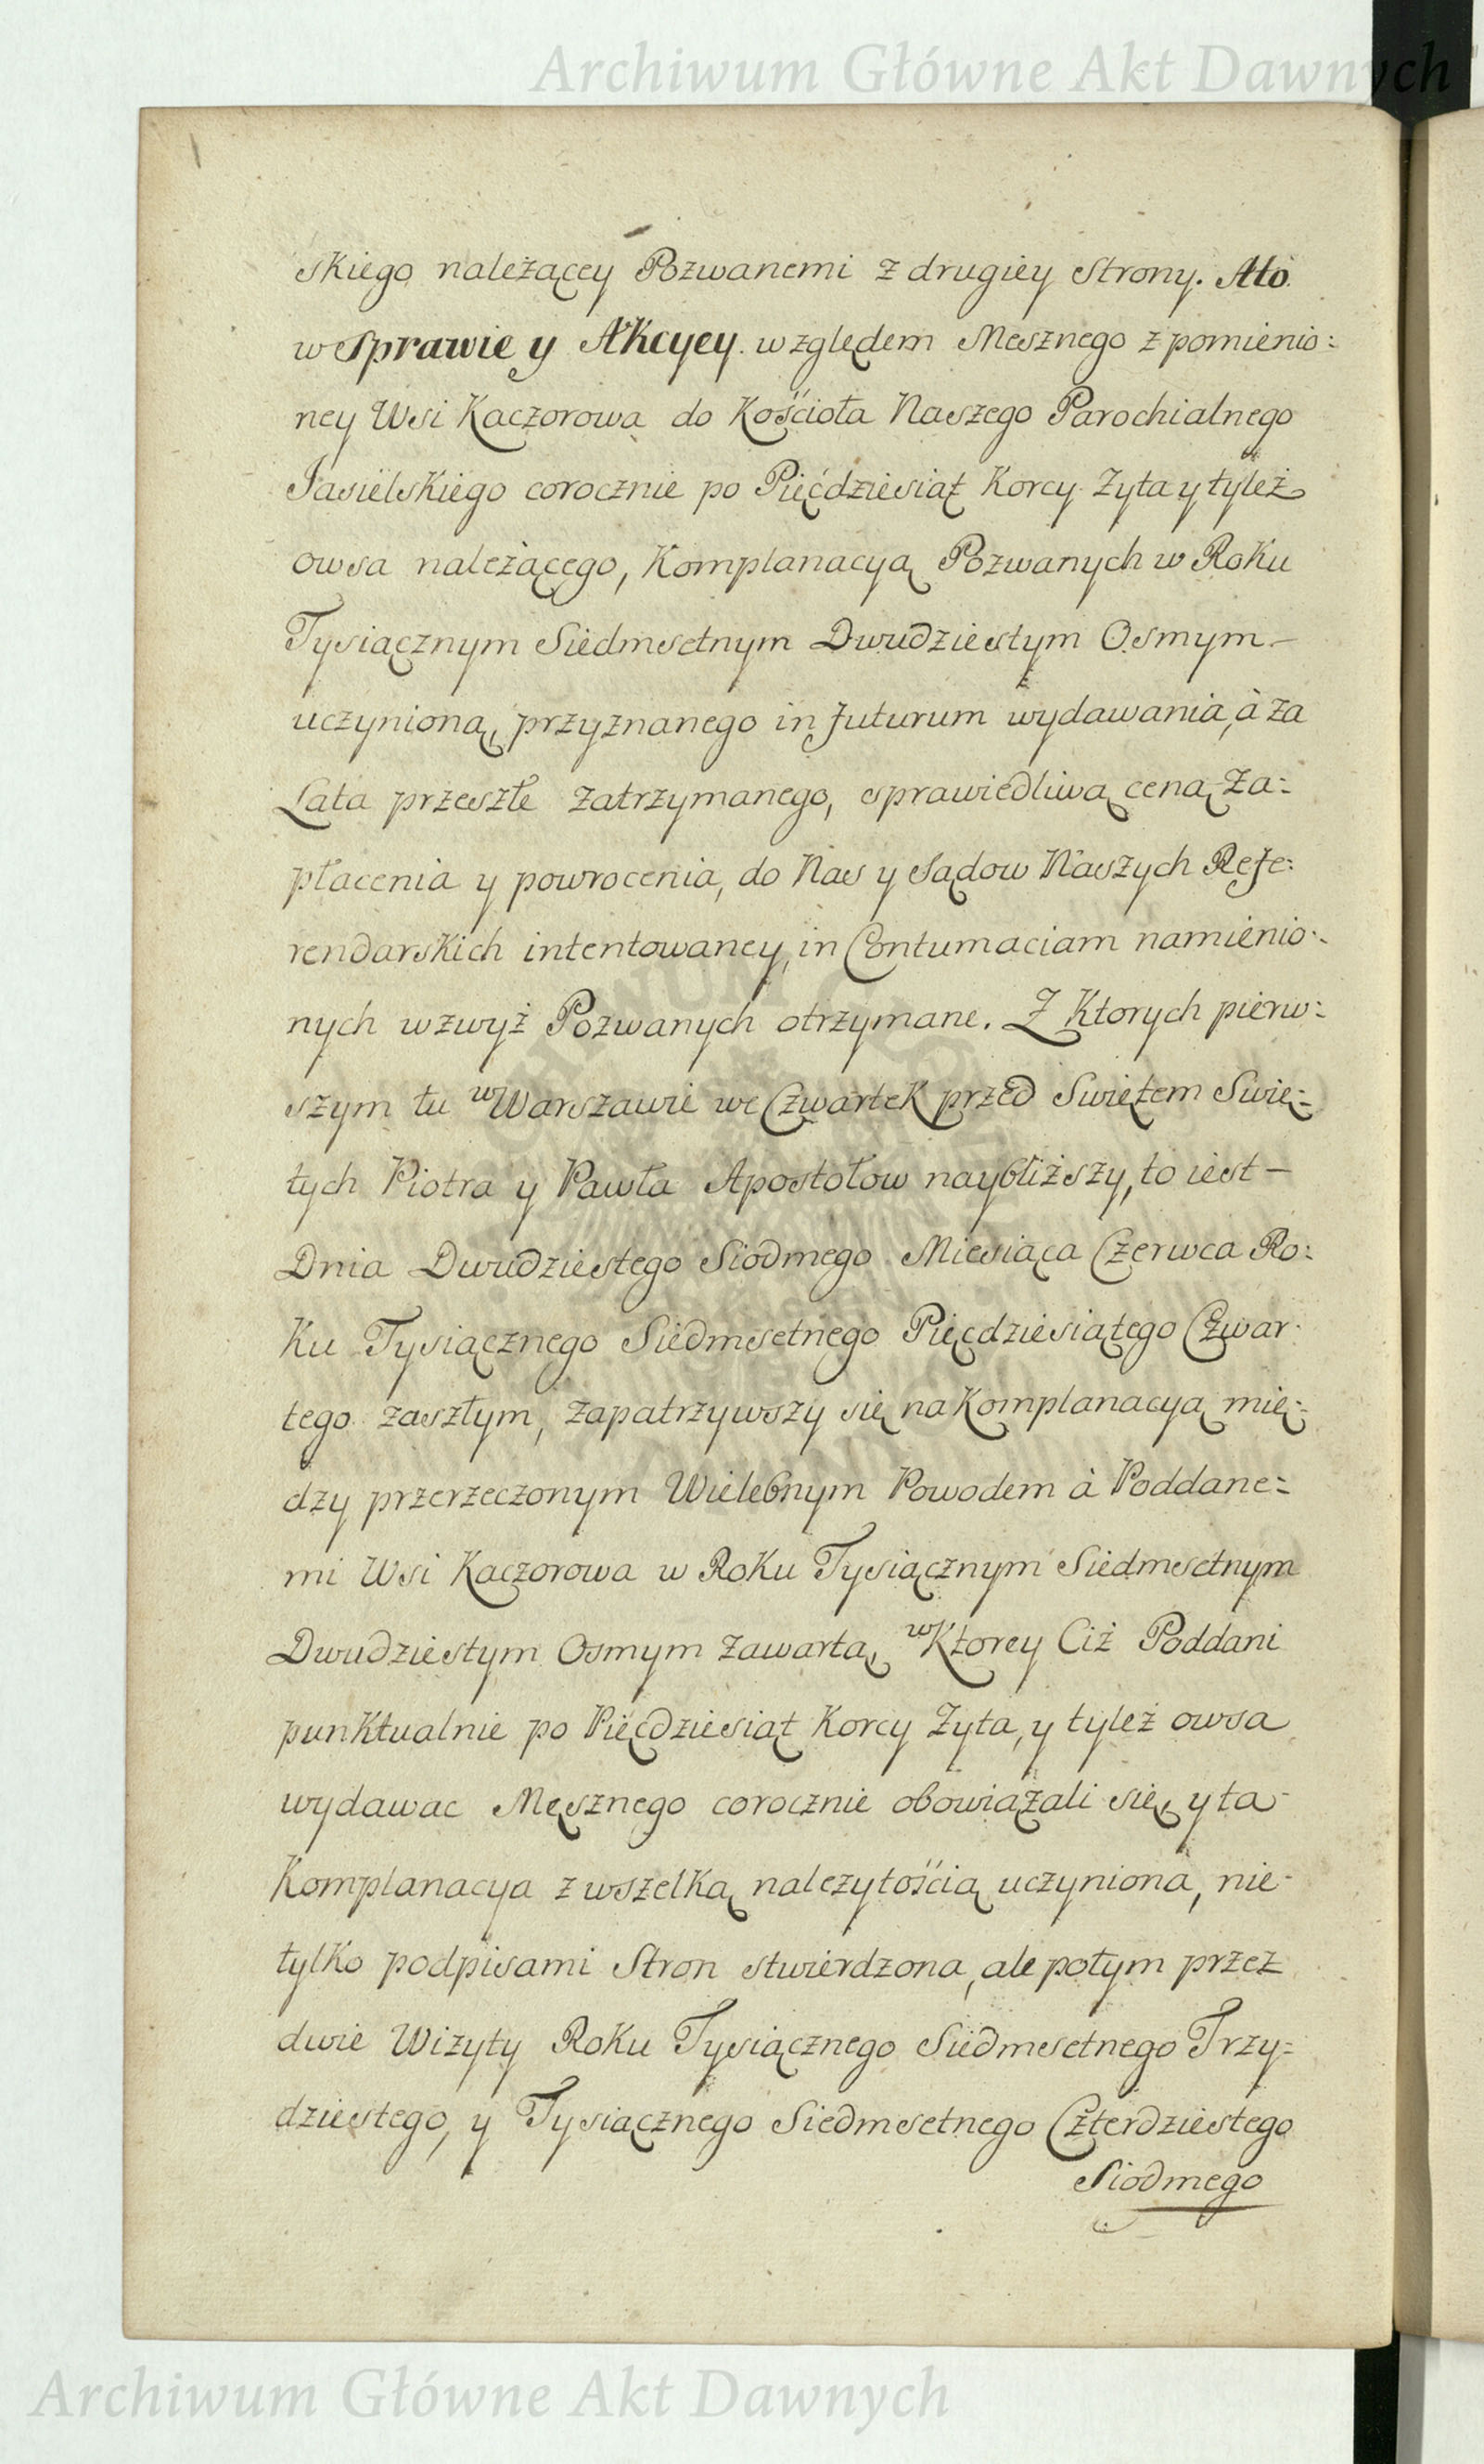 Archiwum Główne Akt Dawnych
skiego należącey Pozwanemi z drugiey Strony. Ato
w Sprawie y Akcyey względem Mesznego z pomienio=
ney Wsi Kaczorowa do Kościoła Naszego Parochialnego
Jasielskiego corocznie po Pięćdziesiąt Korcy Zyta y tyleż
owsa należącego, Komplanacyą Pozwanych w Roku
Tysiącznym Siedmsetnym Dwudziestym Osmym —
uczynioną, przyznanego in futurum wydawania, à za
Lata przeszłe zatrzymanego, sprawiedliwą ceną za=
płacenia y powrocenia, do Nas y Sądow Naszych Refe=
rendarskich intentowaney, in Contumaciam namienio=
nych wzwyż Pozwanych otrzymane. Z Ktorych pierw=
szym tu w Warszawie we Czwartek przed Swiętem Swię=
tych Piotra y Pawła Apostołow naybliższy, to iest —
Dnia Dwudziestego Siodmego Miesiąca Czerwca Ro=
ku Tysiącznego Siedmsetnego Pięcdziesiątego Czwar=
tego zaszłym, zapatrzywszy się na Komplanacyą mię=
dzy przerzeczonym Wielebnym Powodem à Poddane=
mi Wsi Kaczorowa w Roku Tysiącznym Siedmsetnym
Dwudziestym Osmym zawartą, w Ktorey Ciż Poddani
punktualnie po Pięcdziesiąt Korcy Zyta, y tyleż owsa
wydawac Męsznego corocznie obowiązali się, y ta
Komplanacya z wszelką należytością uczyniona, nie=
tylko podpisami Stron stwierdzona, ale potym przez
dwie Wizyty Roku Tysiącznego Siedmsetnego Trzy=
dziestego, y Tysiącznego Siedmsetnego Czterdziestego
Siodmego
Archiwum Główne Akt Dawnych